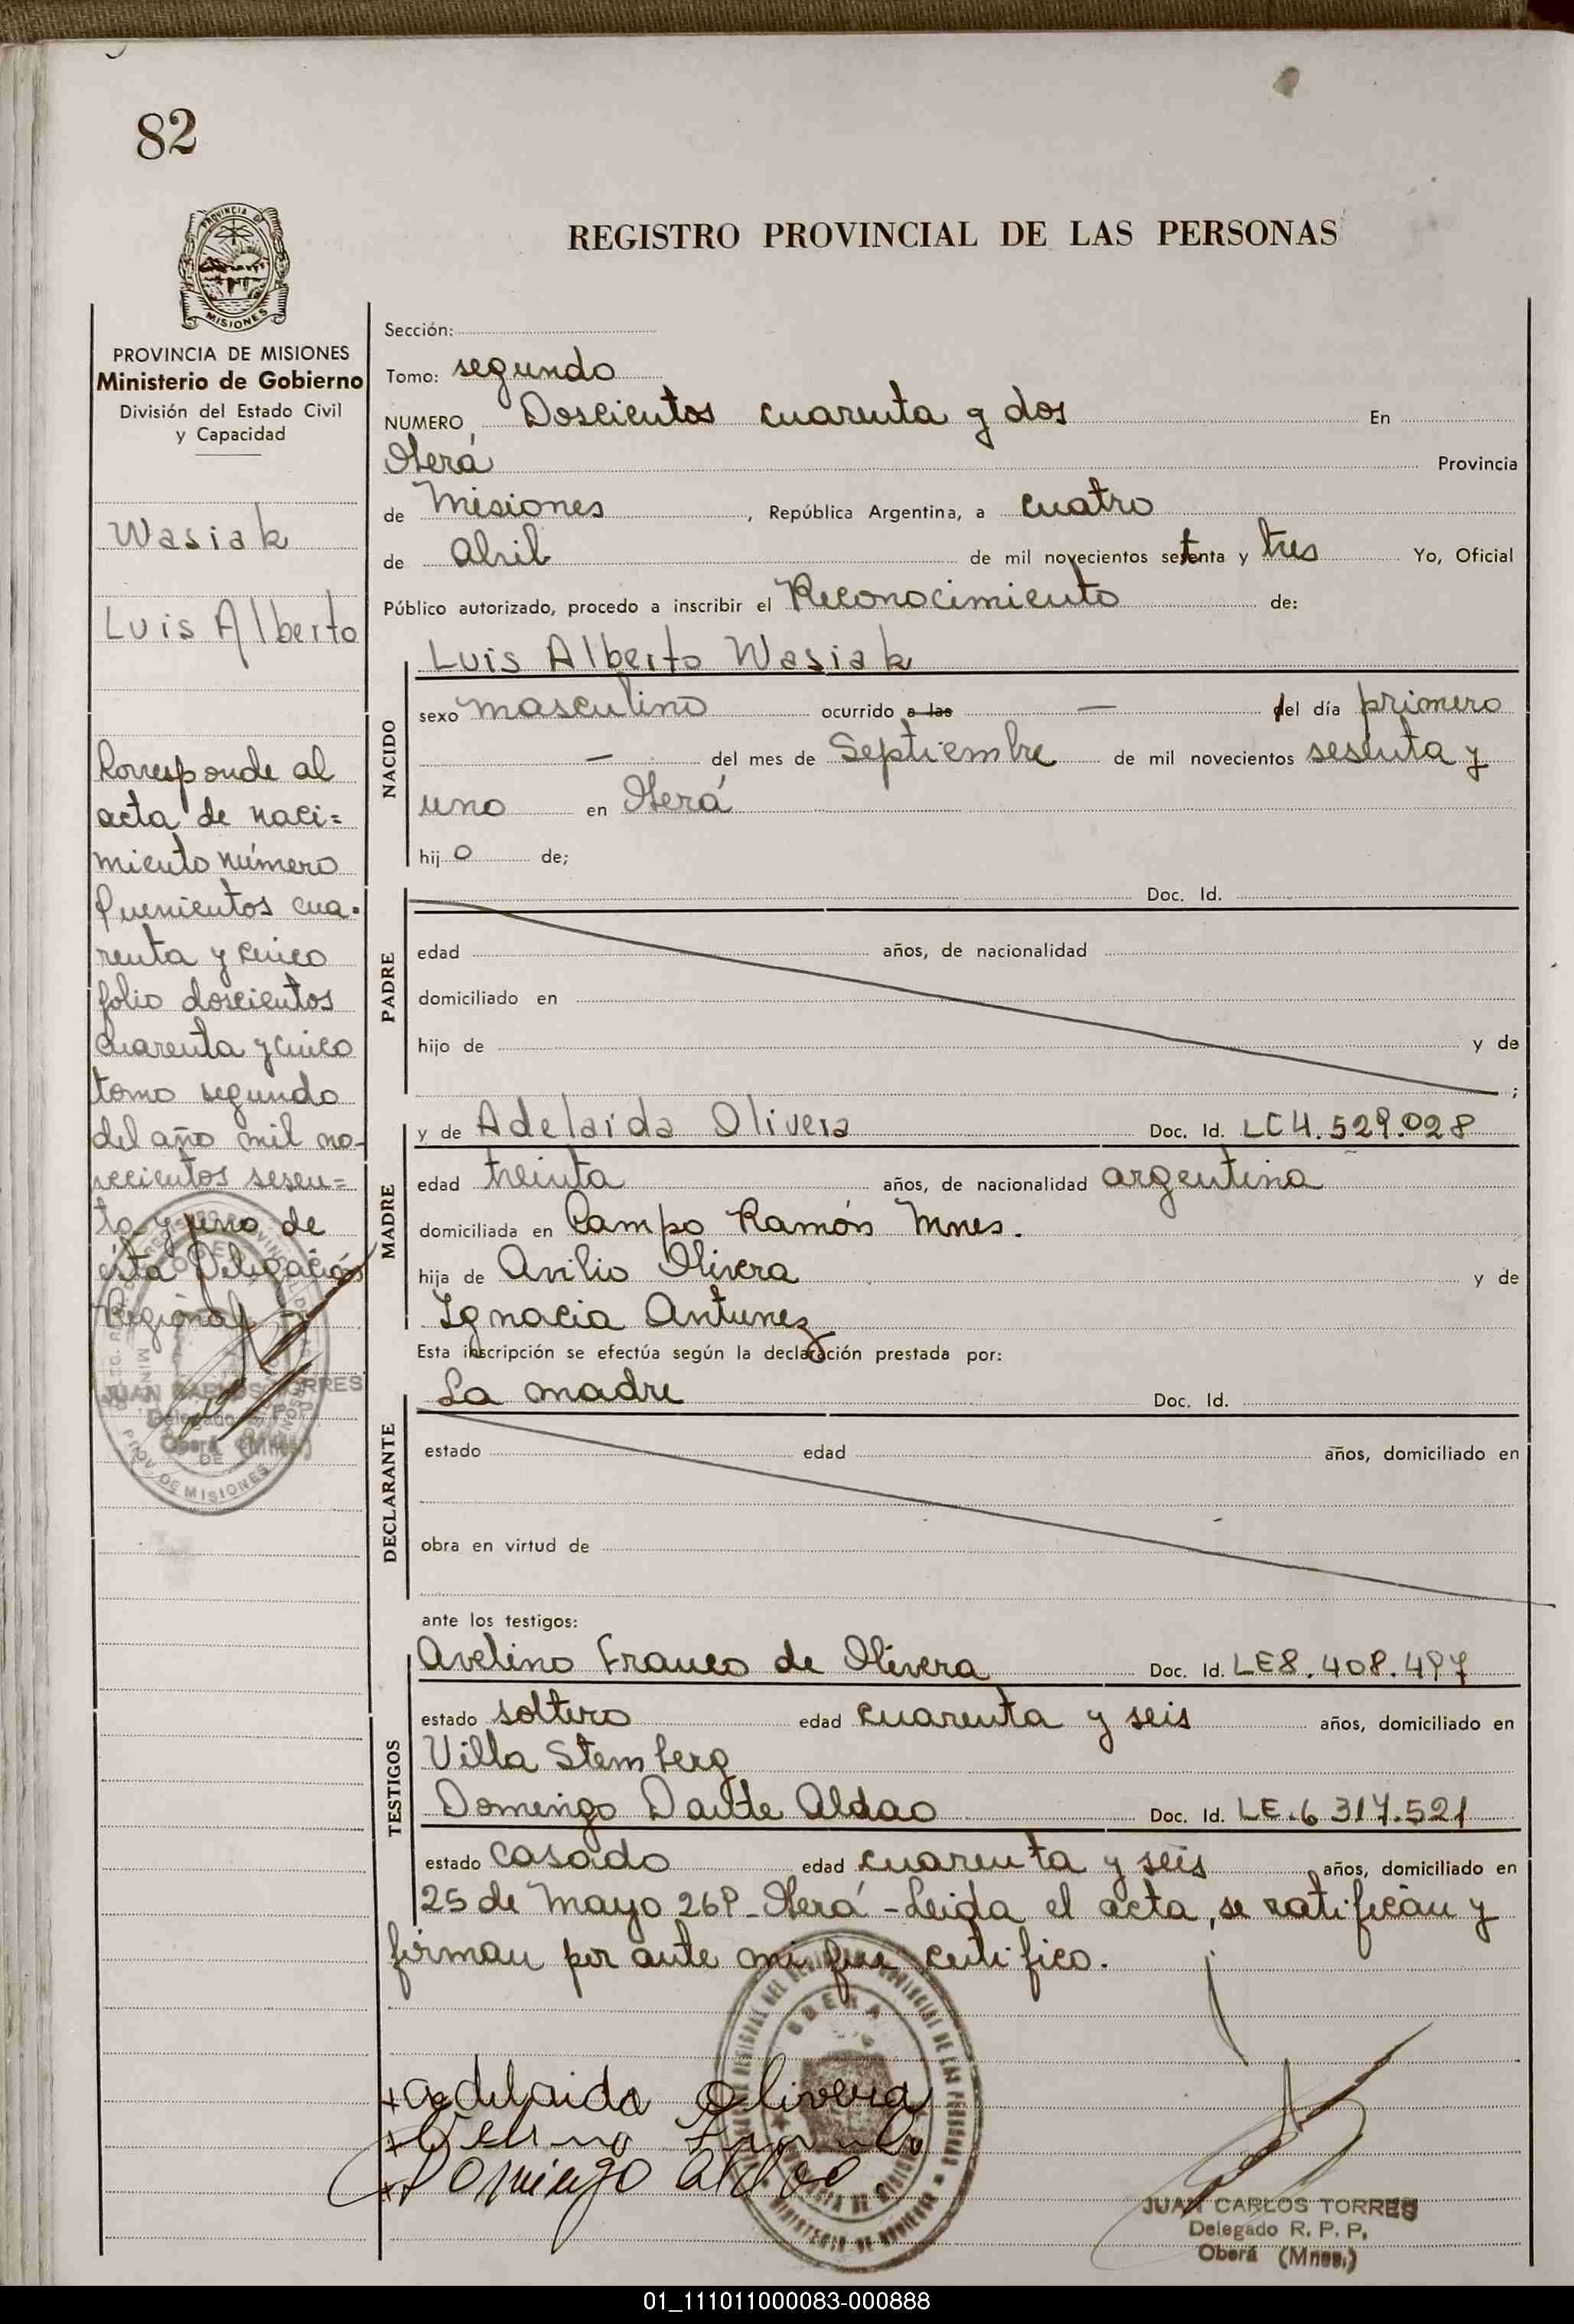 82
PROVINCIA DE MISIONES
REGISTRO PROVINCIAL DE LAS PERSONAS
PROVINCIA DE MISIONES
Ministerio de Gobierno
División del Estado Civil
y Capacidad
Wasiak
Luis Alberto
Corresponde al
acta de naci=
miento número
Quinientos cua-
renta y cinco
folio doscientos
cuarenta y cinco
tomo segundo
del año mil no-
vecientos sesen=
ta y uno de
ésta Delegación
Regional
JUAN CARLOS TORRES
Delegado R. P. P.
Oberá (Mnes.)
PROV. DE MISIONES
Sección:
Tomo: segundo
NUMERO Doscientos cuarenta y dos En
Oberá Provincia
de Misiones, República Argentina, a cuatro
de Abril de mil novecientos setenta y tres Yo, Oficial
Público autorizado, procedo a inscribir el Reconocimiento de:
NACIDO
Luis Alberto Wasiak
sexo masculino ocurrido a las — del día primero
— del mes de Septiembre de mil novecientos sesenta y
uno en Oberá
hijo de;
PADRE
Doc. Id.
edad años, de nacionalidad
domiciliado en
hijo de y de
;
MADRE
y de Adelaida Olivera Doc. Id. LC 4.529.028
edad treinta años, de nacionalidad argentina
domiciliada en Campo Ramón Mnes.
hija de Avilio Olivera y de
Ignacia Antunez
Esta inscripción se efectúa según la declaración prestada por:
DECLARANTE
La madre Doc. Id.
estado edad años, domiciliado en
obra en virtud de
ante los testigos:
TESTIGOS
Avelino Franco de Olivera Doc. Id. LE 8.408.497
estado soltero edad cuarenta y seis años, domiciliado en
Villa Stemberg
Domingo Dante Aldao Doc. Id. LE.6 317.521
estado casado edad cuarenta y seis años, domiciliado en
25 de Mayo 269 - Oberá - Leida el acta, se ratifican y
firman por ante mi que certifico.
OBERA
Adelaida Olivera
Domingo Aldao
JUAN CARLOS TORRES
Delegado R. P. P.
Oberá (Mnes.)
01_111011000083-000888